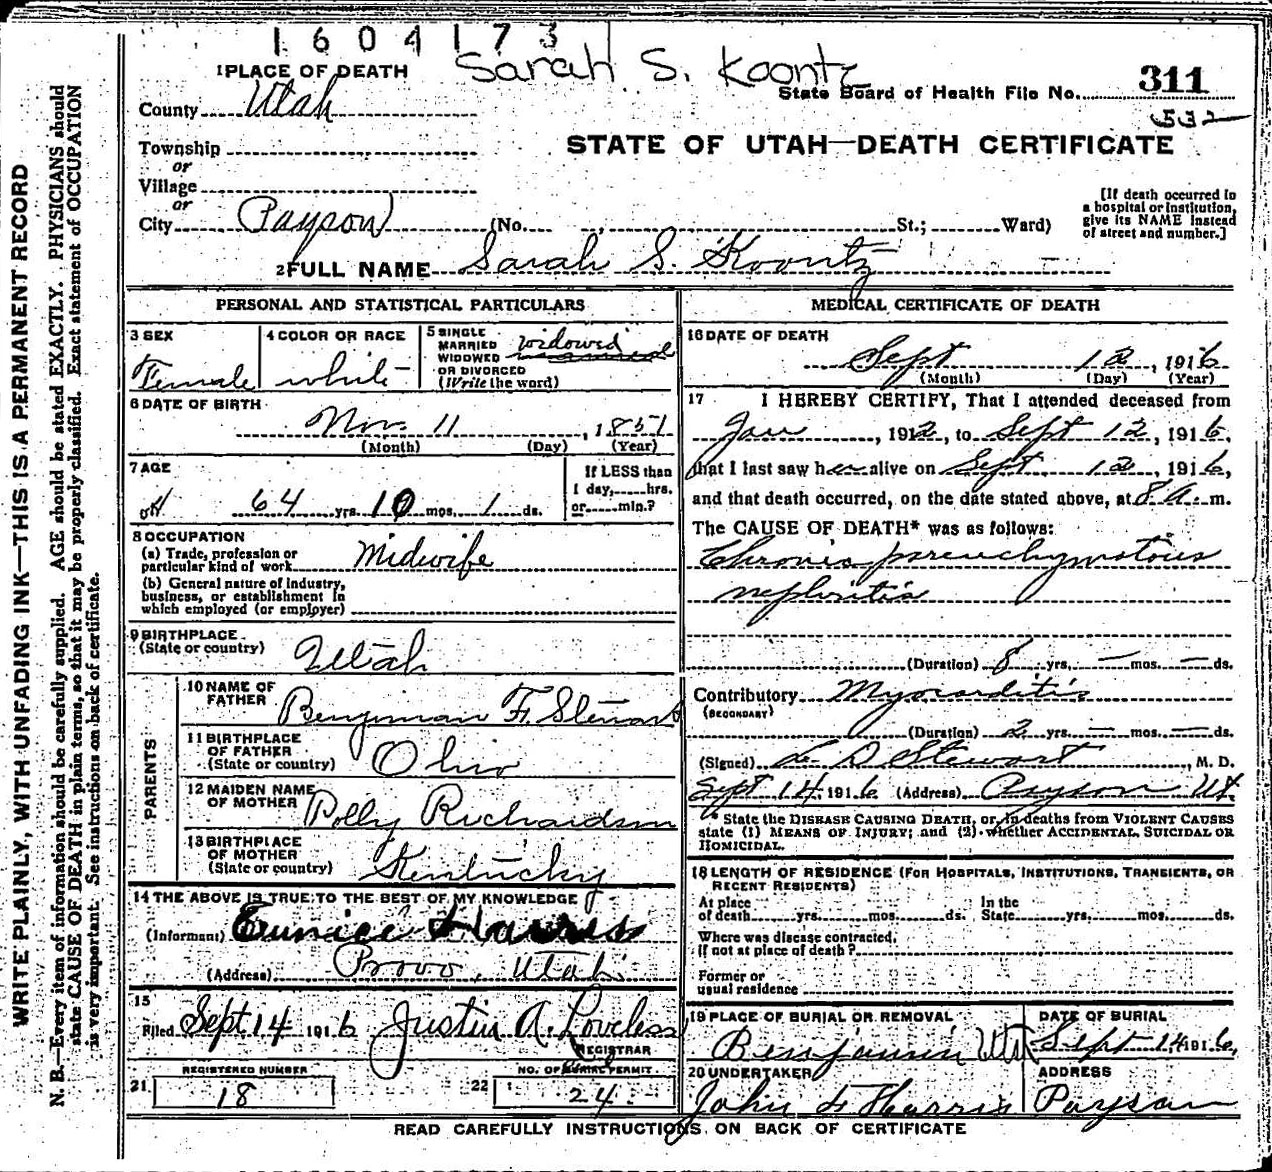 1604173
Sarah S. Koontz
1 PLACE OF DEATH
State Board of Health File No. 311
532
County Utah
STATE OF UTAH—DEATH CERTIFICATE
Township
or
Village
or
City Payson (No. , St.; Ward)
[If death occurred in a hospital or institution, give its NAME instead of street and number.]
2 FULL NAME Sarah S. Koontz
PERSONAL AND STATISTICAL PARTICULARS
3 SEX
Female
4 COLOR OR RACE
white
5 SINGLE
MARRIED
WIDOWED
OR DIVORCED
(Write the word)
widowed
6 DATE OF BIRTH
Nov. 11, 1851
(Month) (Day) (Year)
7 AGE
64 yrs. 10 mos. 1 ds.
If LESS than
1 day, hrs.
or min.?
8 OCCUPATION
(a) Trade, profession or
particular kind of work Midwife
(b) General nature of industry,
business, or establishment in
which employed (or employer)
9 BIRTHPLACE
(State or country)
Utah
PARENTS
10 NAME OF
FATHER
Benjiman F. Stewart
11 BIRTHPLACE
OF FATHER
(State or country)
Ohio
12 MAIDEN NAME
OF MOTHER
Polly Richardson
13 BIRTHPLACE
OF MOTHER
(State or country)
Kentucky
14 THE ABOVE IS TRUE TO THE BEST OF MY KNOWLEDGE
(Informant) Eunice Harris
(Address) Provo, Utah
15
Filed Sept 14 1916 Justin A. Loveless
REGISTRAR
REGISTERED NUMBER
21 18
NO. OF BURIAL PERMIT
22 24
MEDICAL CERTIFICATE OF DEATH
16 DATE OF DEATH
Sept 12, 1916
(Month) (Day) (Year)
17 I HEREBY CERTIFY, That I attended deceased from
Jan, 1912, to Sept 12, 1916,
that I last saw her alive on Sept 12, 1916,
and that death occurred, on the date stated above, at 8 a. m.
The CAUSE OF DEATH* was as follows:
Chronic parenchymatous
nephritis
(Duration) 8 yrs. — mos. — ds.
Contributory Myocarditis
(SECONDARY)
(Duration) 2 yrs. — mos. — ds.
(Signed) L. D. Stewart, M. D.
Sept 14, 1916 (Address) Payson Ut.
* State the DISEASE CAUSING DEATH, or, in deaths from VIOLENT CAUSES
state (1) MEANS OF INJURY; and (2) whether ACCIDENTAL, SUICIDAL OR
HOMICIDAL.
18 LENGTH OF RESIDENCE (FOR HOSPITALS, INSTITUTIONS, TRANSIENTS, OR
RECENT RESIDENTS)
At place In the
of death yrs. mos. ds. State yrs. mos. ds.
Where was disease contracted,
if not at place of death?
Former or
usual residence
19 PLACE OF BURIAL OR REMOVAL
Benjamin Utah
DATE OF BURIAL
Sept 14 1916.
20 UNDERTAKER
John F Harris
ADDRESS
Payson
READ CAREFULLY INSTRUCTIONS ON BACK OF CERTIFICATE
WRITE PLAINLY, WITH UNFADING INK—THIS IS A PERMANENT RECORD
N. B.—Every item of information should be carefully supplied. AGE should be stated EXACTLY. PHYSICIANS should
state CAUSE OF DEATH in plain terms, so that it may be properly classified. Exact statement of OCCUPATION
is very important. See instructions on back of certificate.